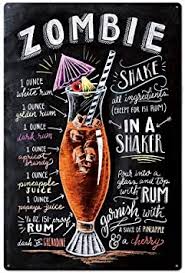 ZOMBIE
1 OUNCE
white RUM
1 OUNCE
golden RUM
1 OUNCE
dark RUM
1 OUNCE
apricot
brandy
1 OUNCE
PINEAPPLE
JUICE
1 OUNCE
papaya juice
½ OZ. 151-proof
RUM
dash of GRENADINE
SHAKE
all ingredients
(EXCEPT FOR 151 RUM)
IN A
SHAKER
Pour into a
glass and top
WITH RUM
garnish with
A SLICE OF PINEAPPLE
& a cherry